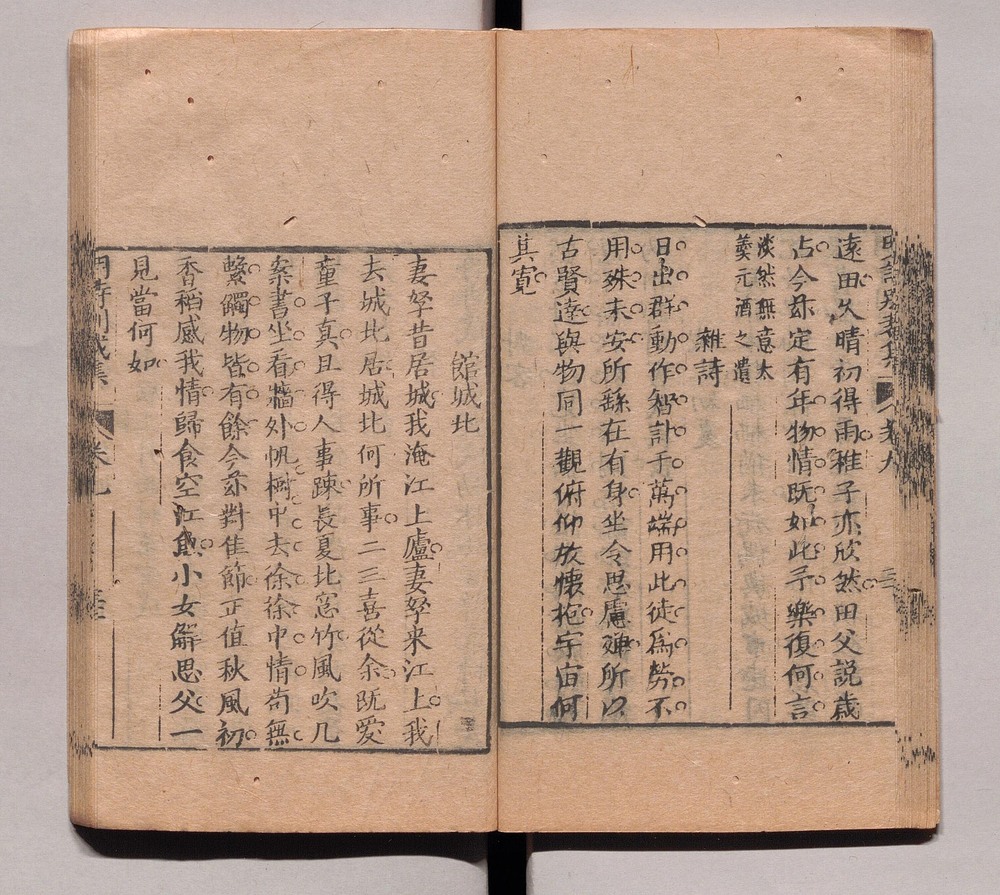 明詩別裁集 卷九 三
遠田久晴初得雨稚子亦欣然田父說歲
占今茲定有年物情既如此予樂復何言
淡然無意太
羹元酒之遺
雜詩
日出群動作智計千萬端用此徒為勞不
用殊未安所繇在有身坐令思慮殫所以
古賢達與物同一觀俯仰放懷抱宇宙何
其寬
館城北
妻孥昔居城我淹江上廬妻孥来江上我
去城北居城北何所事二三喜從余既愛
童子真且得人事疎長夏北窓竹風吹几
案書坐看牆外帆檣中去徐徐中情苟無
繫觸物皆有餘今茲對佳節正值秋風初
香稻感我情歸食空江魚小女解思父一
見當何如
明詩別裁集 卷九